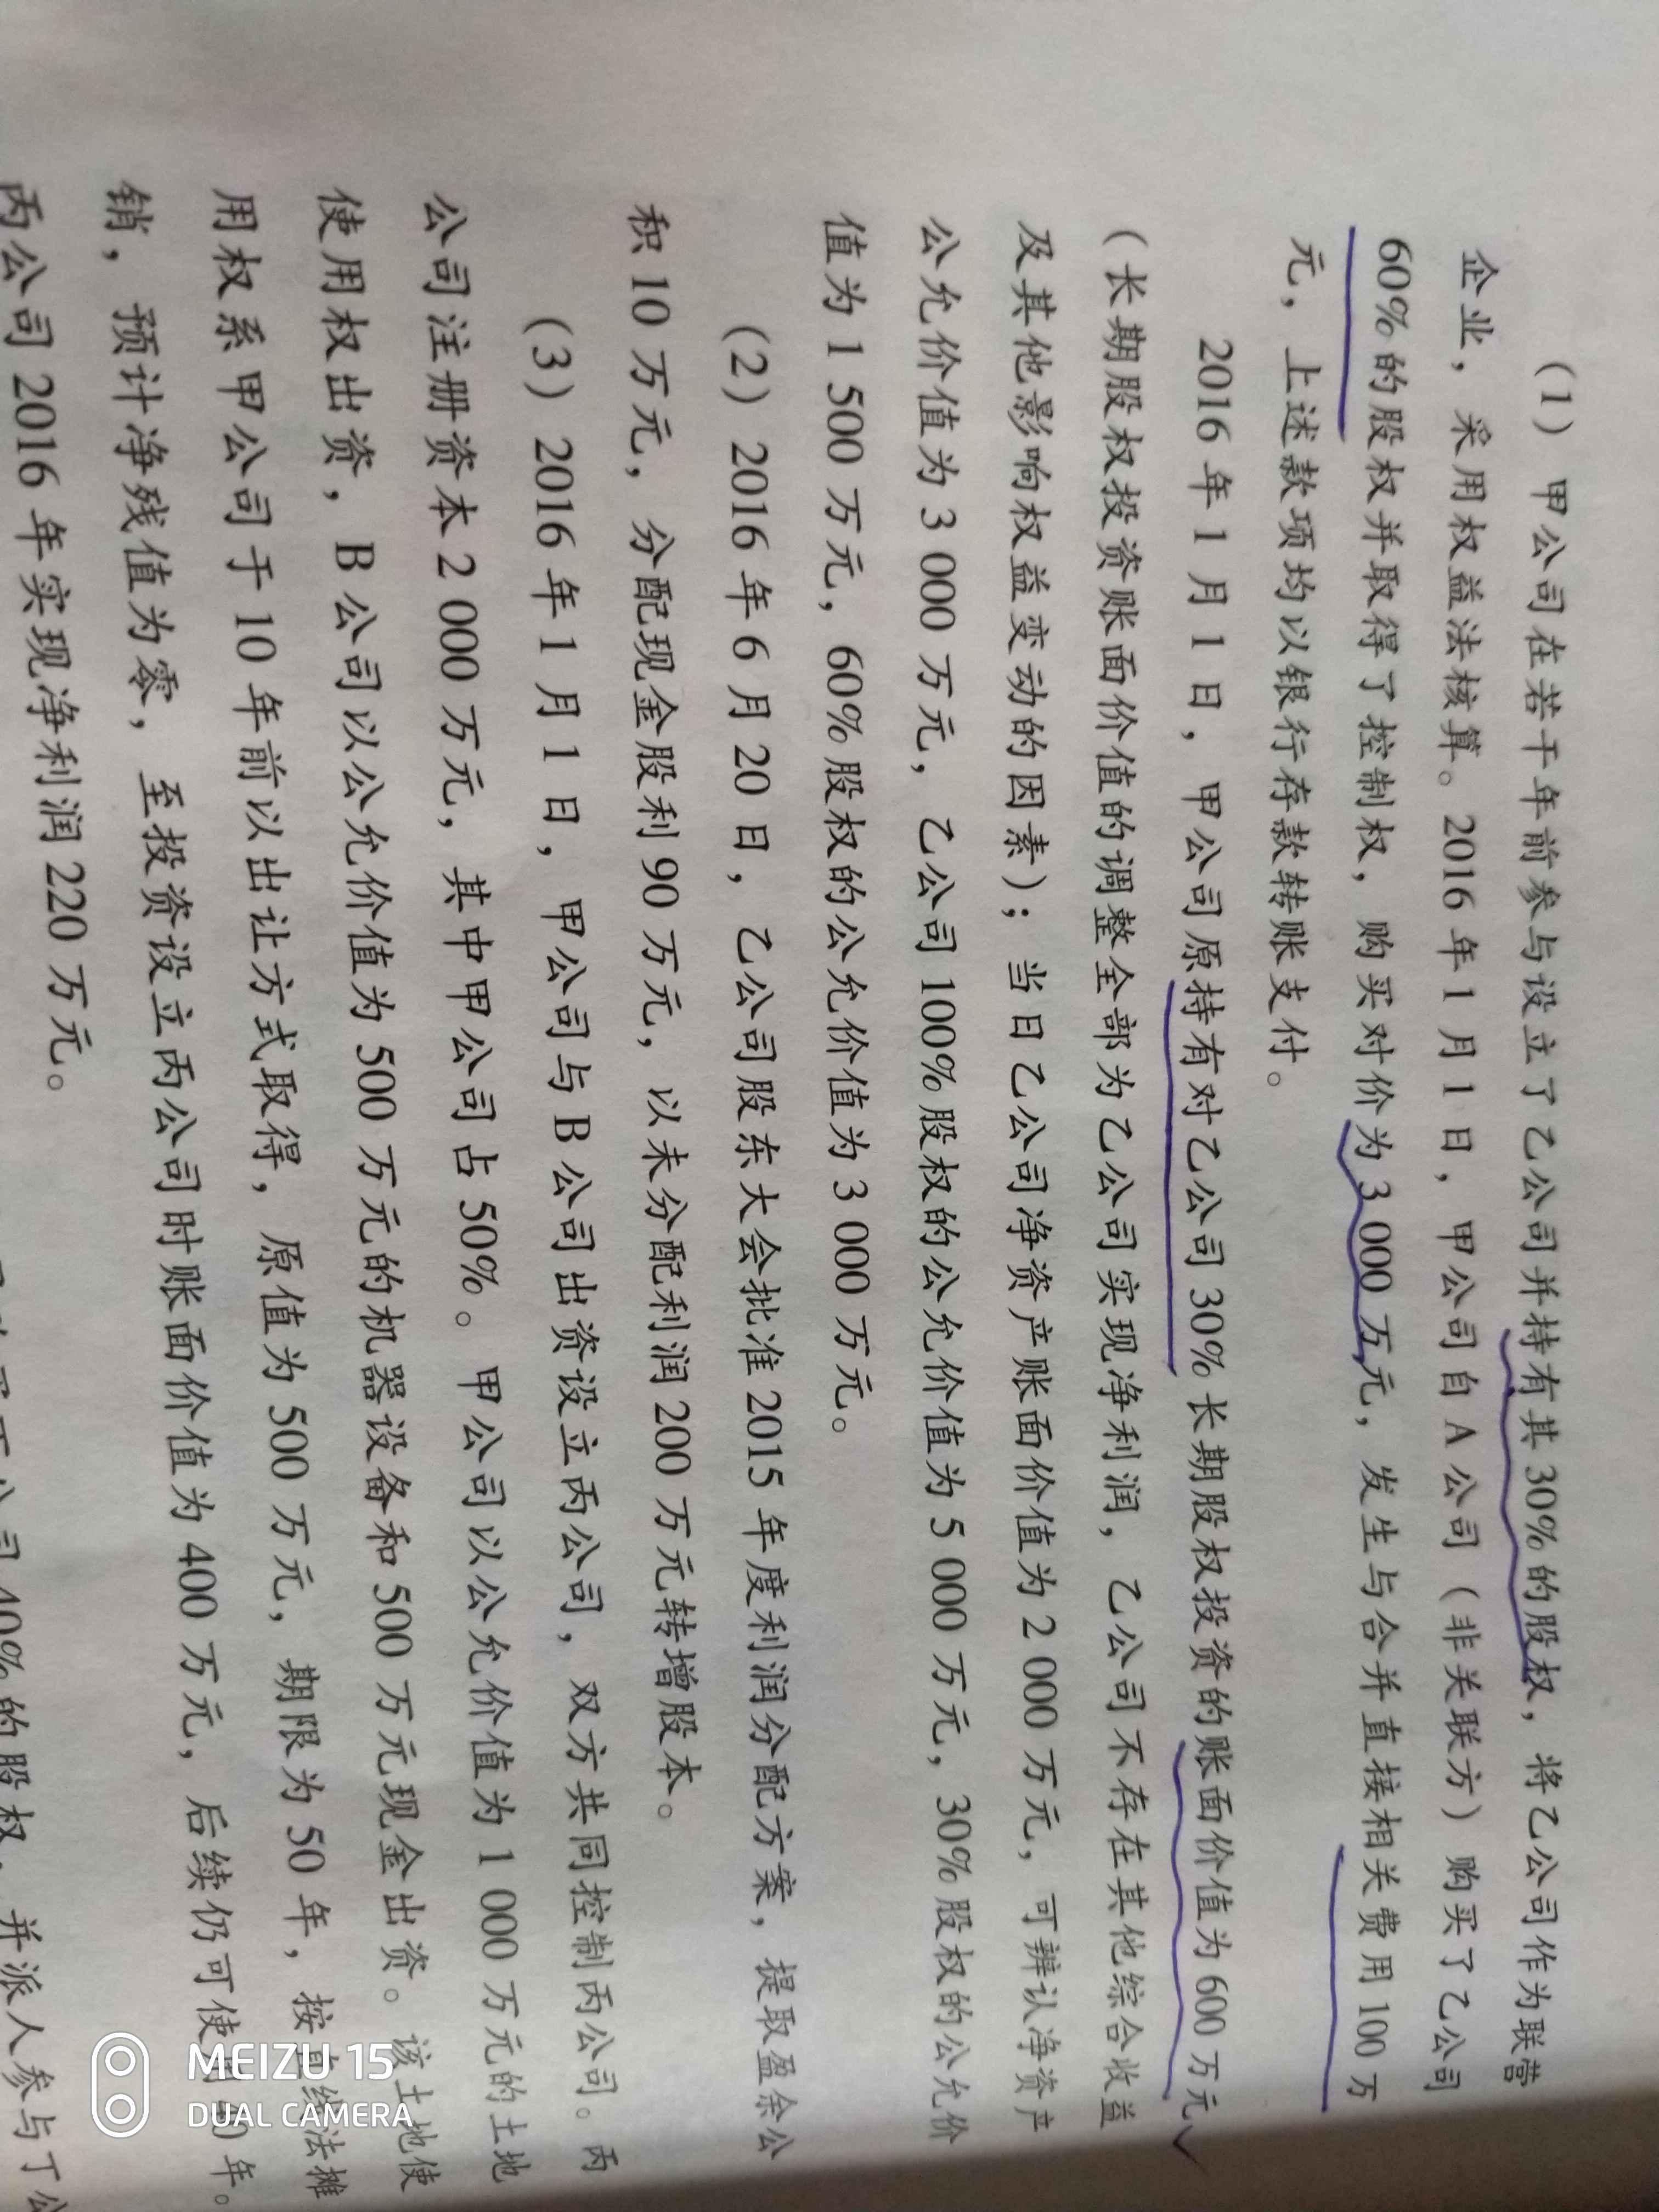 （1）甲公司在若干年前参与设立了乙公司并持有其30%的股权，将乙公司作为联营
企业，采用权益法核算。2016年1月1日，甲公司自A公司（非关联方）购买了乙公司
60%的股权并取得了控制权，购买对价为3 000万元，发生与合并直接相关费用100万
元，上述款项均以银行存款转账支付。
2016年1月1日，甲公司原持有对乙公司30%长期股权投资的账面价值为600万元
（长期股权投资账面价值的调整全部为乙公司实现净利润，乙公司不存在其他综合收益
及其他影响权益变动的因素）；当日乙公司净资产账面价值为2 000万元，可辨认净资产
公允价值为3 000万元，乙公司100%股权的公允价值为5 000万元，30%股权的公允价
值为1 500万元，60%股权的公允价值为3 000万元。
（2）2016年6月20日，乙公司股东大会批准2015年度利润分配方案，提取盈余公
积10万元，分配现金股利90万元，以未分配利润200万元转增股本。
（3）2016年1月1日，甲公司与B公司出资设立丙公司，双方共同控制丙公司。丙
公司注册资本2 000万元，其中甲公司占50%。甲公司以公允价值为1 000万元的土地
使用权出资，B公司以公允价值为500万元的机器设备和500万元现金出资。该土地使
用权系甲公司于10年前以出让方式取得，原值为500万元，期限为50年，按直线法摊
销，预计净残值为零，至投资设立丙公司时账面价值为400万元，后续仍可使用40年。
丙公司2016年实现净利润220万元。
公司40%的股权，并派人参与丁公
MEIZU 15
DUAL CAMERA